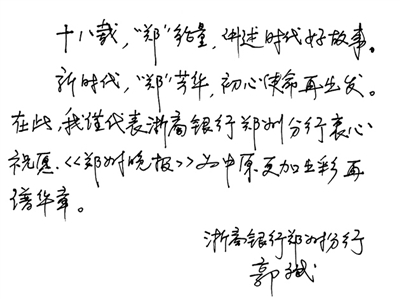 十八载，“郑”能量，讲述时代好故事。
新时代，“郑”芳华，初心使命再出发。
在此，我谨代表浙商银行郑州分行衷心
祝愿《郑州晚报》为中原更加出彩再
谱华章。
浙商银行郑州分行
郭斌